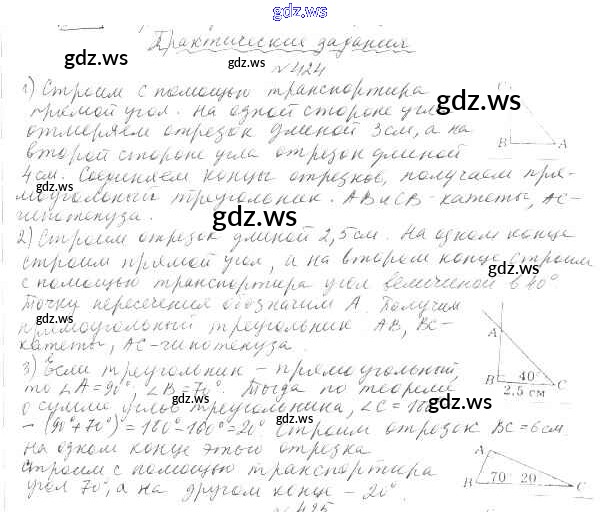 gdz.ws
Практические задания
gdz.ws
gdz.ws
№424
1) Строим с помощью транспортира
прямой угол. На одной стороне угла
gdz.ws
C
отмеряем отрезок длиной 3см, а на
второй стороне угла отрезок длиной
B A
4см. Соединяем концы отрезков, получаем пря-
gdz.ws
моугольный треугольник. AB и CB - катеты, AC-
гипотенуза.
gdz.ws
2) Строим отрезок длиной 2,5см. На одном конце
строим прямой угол, а на втором конце строим
gdz.ws
с помощью транспортира угол величиной в 40°
Точку пересечения обозначим A. Получим
gdz.ws
прямоугольный треугольник AB, BC-
A
катеты, AC-гипотенуза.
40°
B C
2,5 см
3) Если треугольник - прямоугольный,
gdz.ws
то ∠A=90°, ∠B=70°. Тогда по теореме
gdz.ws
о сумме углов треугольника, ∠C = 180°
gdz.ws
-(90°+70°)=180°-160°=20° Строим отрезок BC=6см.
На одном конце этого отрезка
A
строим с помощью транспортира
gdz.ws
70° 20°
B C
угол 70°, а на другом конце - 20°.
gdz.ws
№425